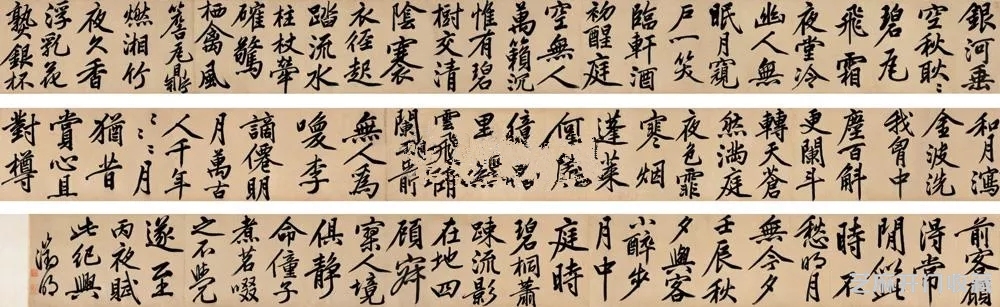 銀河垂
空秋耿〻
碧瓦
飛霜
夜堂冷
幽人無
眠月窺
戶一笑
臨軒酒
初醒庭
空無人
萬籟沉
惟有碧
樹交清
陰褰
衣徑起
踏流水
拄杖犖
確驚
栖禽風
簷石鼎
燃湘竹
夜久香
浮乳花
熟銀杯
和月瀉
金波洗
我胷中
塵百斛
更闌斗
轉天蒼
然滿庭
夜色霏
寒烟
蓬萊
何處
里
雲飛
闌干前
無人爲
喚李
謫僊明
月萬古
人千年
〻〻〻月
猶昔
賞心且
對樽
前客願
得常
閒似
時不
愁明月
無今夕
壬辰秋
夕與客
小醉步
月中
庭時
碧桐蕭
疎流影
在地四
顧寂
寥人境
俱靜
命僮子
煮茗啜
之不覺
遂至
丙夜賦
此紀興
徵明